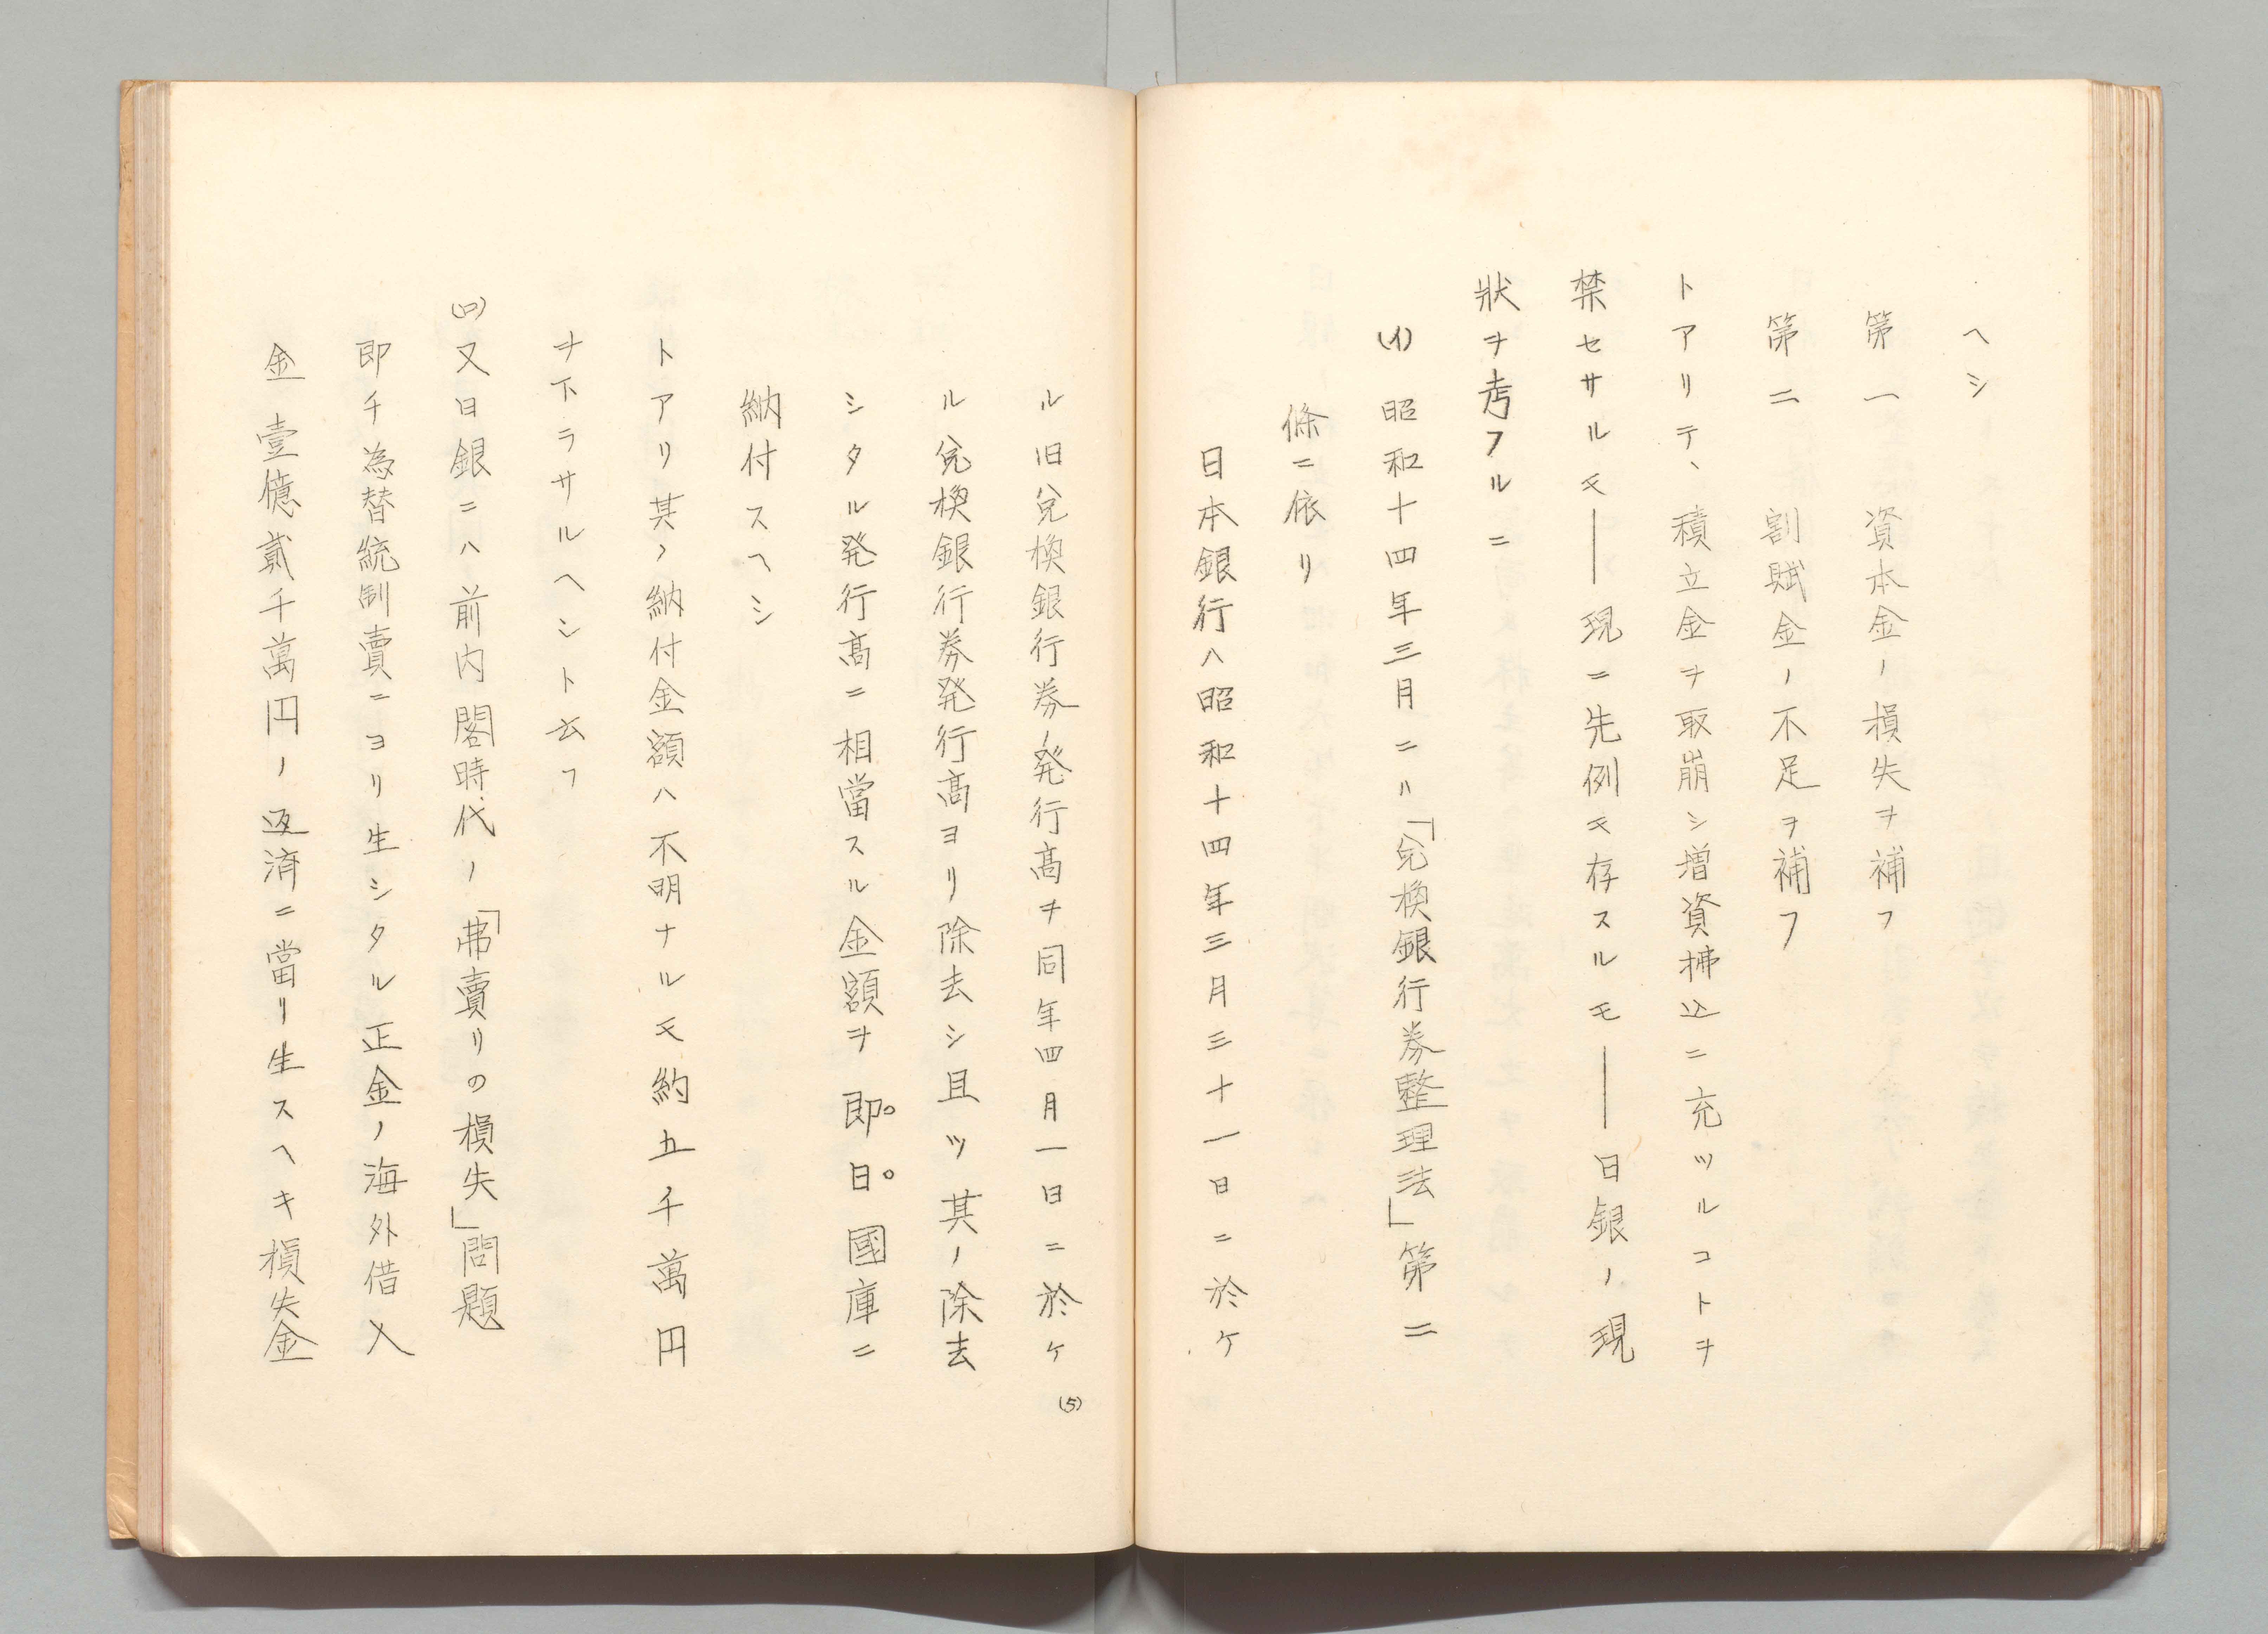 ヘシ
第一　資本金ノ損失ヲ補フ
第二　割賦金ノ不足ヲ補フ
トアリテ、積立金ヲ取崩シ増資拂込ニ充ツルコトヲ
禁セサルモ――現ニ先例モ存スルモ――日銀ノ現
狀ヲ考フルニ
(イ)昭和十四年三月ニハ「兌換銀行券整理法」第二
條ニ依リ
日本銀行ハ昭和十四年三月三十一日ニ於ケ
ル旧兌換銀行券ノ発行高ヲ同年四月一日ニ於ケ
ル兌換銀行券発行高ヨリ除去シ且ツ其ノ除去
シタル発行高ニ相當スル金額ヲ即日國庫ニ
納付スヘシ
トアリ其ノ納付金額ハ不明ナルモ約五千萬円
ヲ下ラサルヘシト云フ
(ロ)又日銀ニハ前内閣時代ノ「弗賣リの損失」問題
即チ為替統制賣ニヨリ生シタル正金ノ海外借入
金壹億貳千萬円ノ返済ニ當リ生スヘキ損失金
(5)